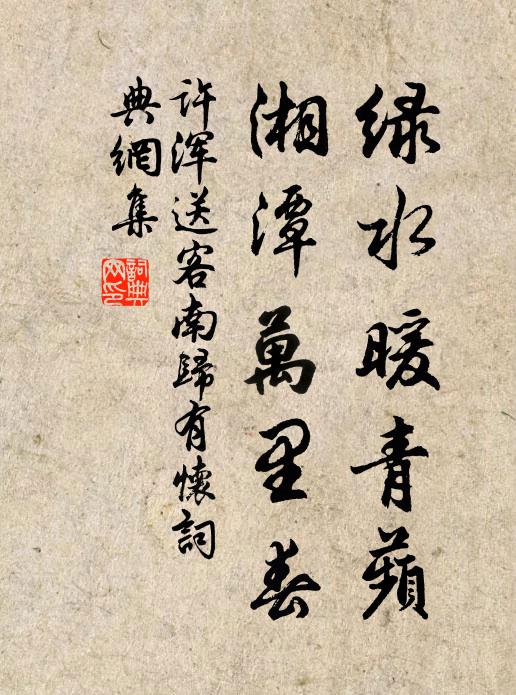 绿水暖青蘋
湘潭萬里春
许浑送客南歸有懷詞
典網集
詞典
网印